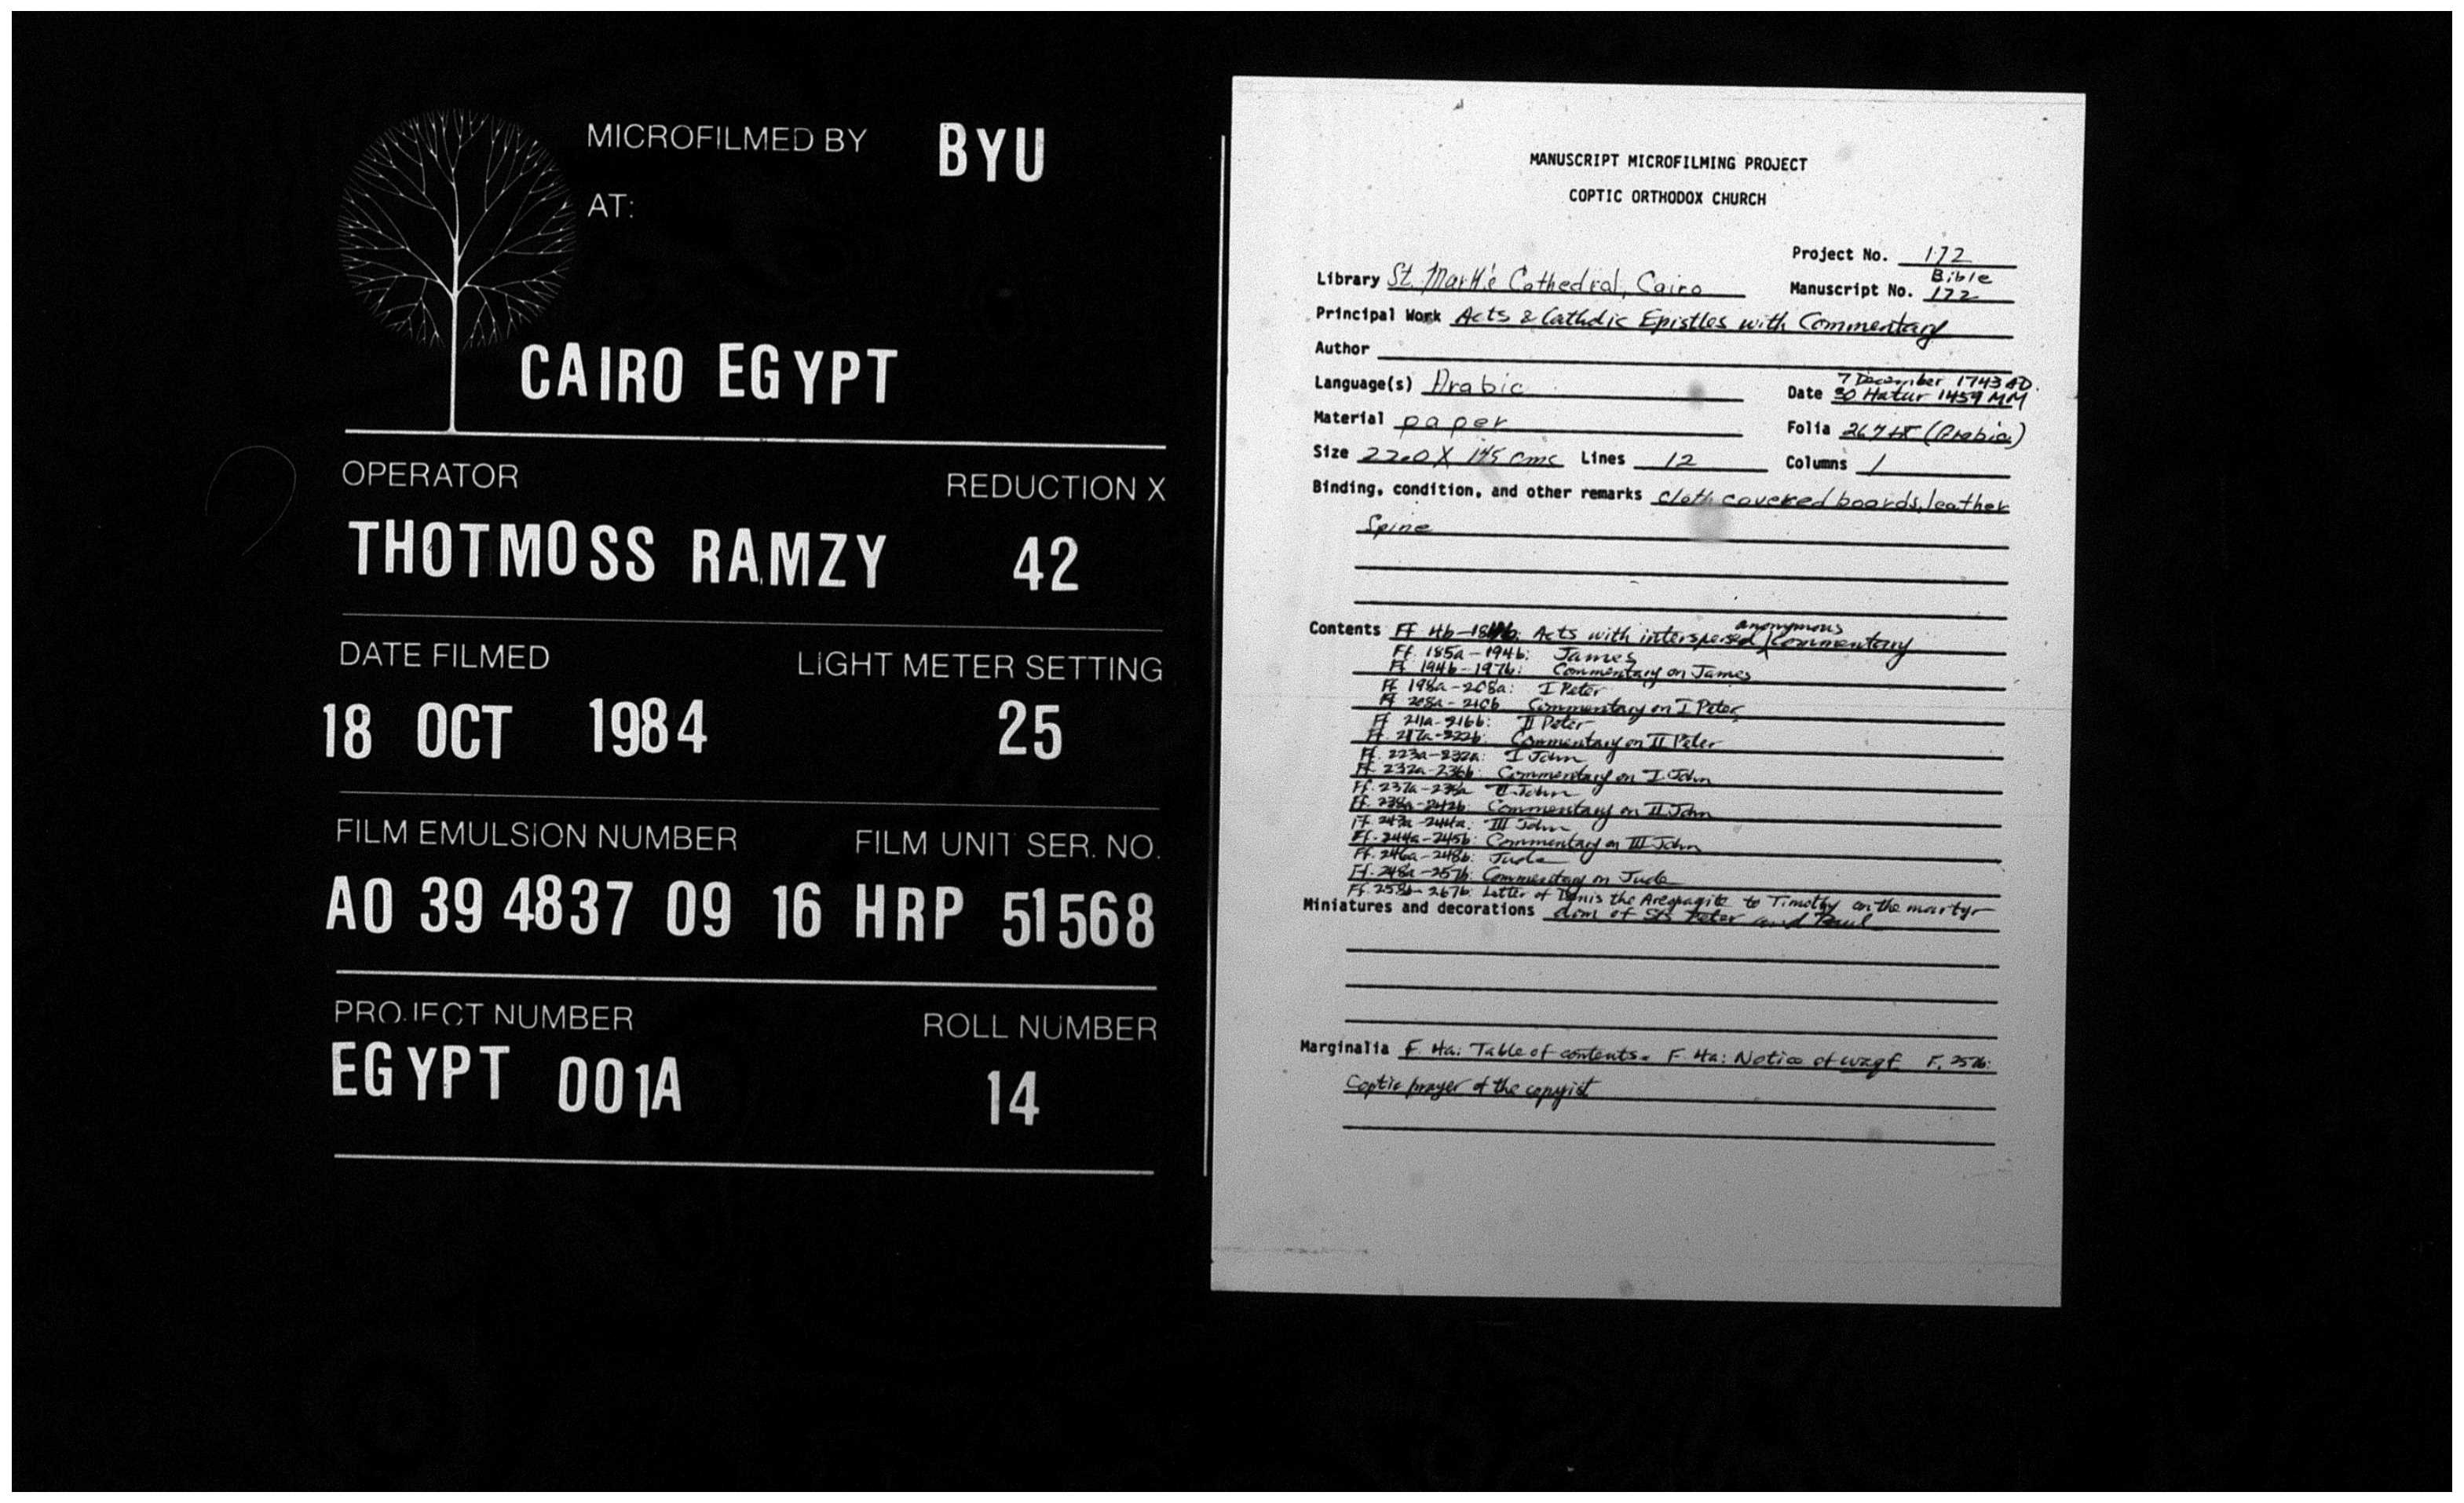 MICROFILMED BY BYU
AT:
CAIRO EGYPT
OPERATOR REDUCTION X
THOTMOSS RAMZY 42
DATE FILMED LIGHT METER SETTING
18 OCT 1984 25
FILM EMULSION NUMBER FILM UNIT SER. NO.
A0 39 4837 09 16 HRP 51568
PROJECT NUMBER ROLL NUMBER
EGYPT 001A 14
MANUSCRIPT MICROFILMING PROJECT
COPTIC ORTHODOX CHURCH
Project No. 172
Library St. Mark's Cathedral, Cairo
Bible
Manuscript No. 172
Principal Work Acts & Catholic Epistles with Commentary
Author
Language(s) Arabic
7 December 1743 AD.
Date 30 Hatur 1459 MM
Material paper
Folia (Arabic)
Size 22.0 X cms Lines 12 Columns 1
Binding, condition, and other remarks cloth covered boards, leather
Spine
anonymous
Contents Ff 4b- Acts with interspersed Commentary
Ff. 185a-194b: James
Ff 194b-197b: Commentary on James
Ff 198a-208a: I Peter
Ff 208a-210b Commentary on I Peter
Ff 211a-216b: II Peter
Ff. 217a-222b: Commentary on II Peter
Ff. 223a-232a: I John
Ff. 232a-236b: Commentary on I John
Ff. 237a- II John
Ff. Commentary on II John
Ff 243a-244a: III John
Ff. 244a-245b: Commentary on III John
Ff. 246a-248b: Jude
Ff. 248a-257b: Commentary on Jude
Ff. 258b-267b: Letter of Denis the Areopagite to Timothy on the martyr-
Miniatures and decorations dom of Sts Peter and Paul
Marginalia F. 4a: Table of contents. F. 4a: Notice of waqf. F. 257b:
Coptic prayer of the copyist